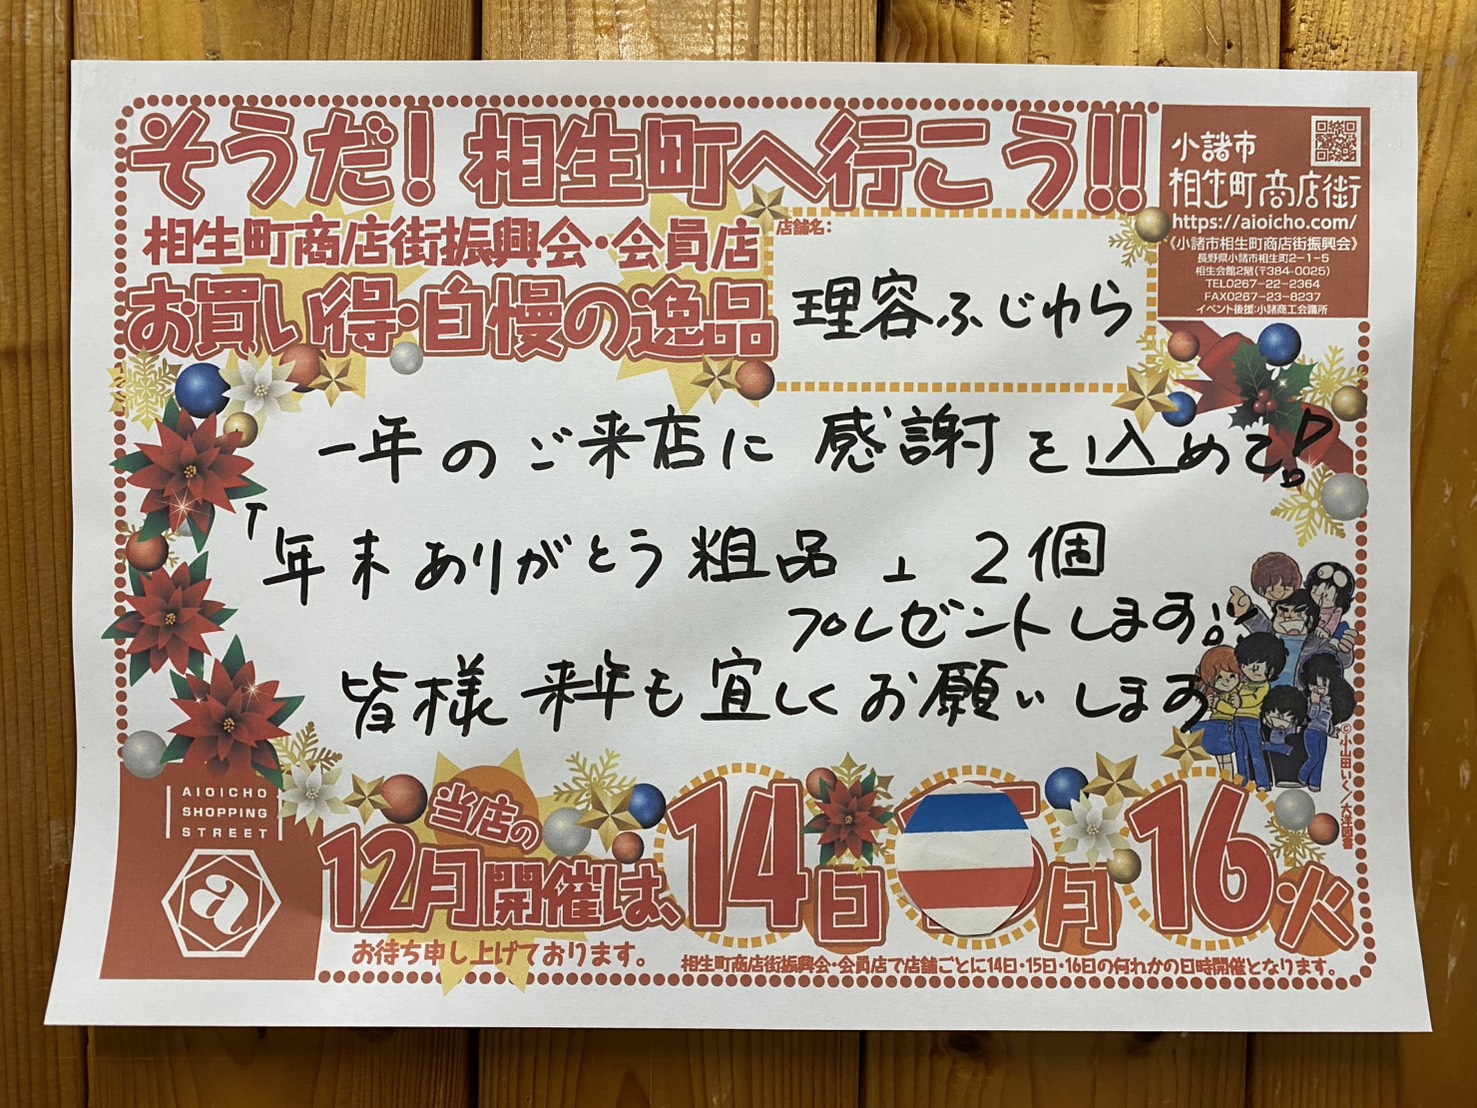 そうだ!相生町へ行こう!!
小諸市
相生町商店街
https://aioicho.com/
《小諸市相生町商店街振興会》
長野県小諸市相生町2-1-5
相生会館2階(〒384-0025)
TEL0267-22-2364
FAX0267-23-8237
イベント後援:小諸商工会議所
相生町商店街振興会・会員店
お買い得・自慢の逸品
店舗名:
理容ふじわら
一年のご来店に感謝を込めて!
「年末ありがとう粗品」2個
プレゼントします!
皆様来年も宜しくお願いします
©小山田いく/大洋図書
AIOICHO
SHOPPING
STREET
a
当店の
12月開催は、14日 月 16火
お待ち申し上げております。
相生町商店街振興会・会員店で店舗ごとに14日・15日・16日の何れかの日時開催となります。